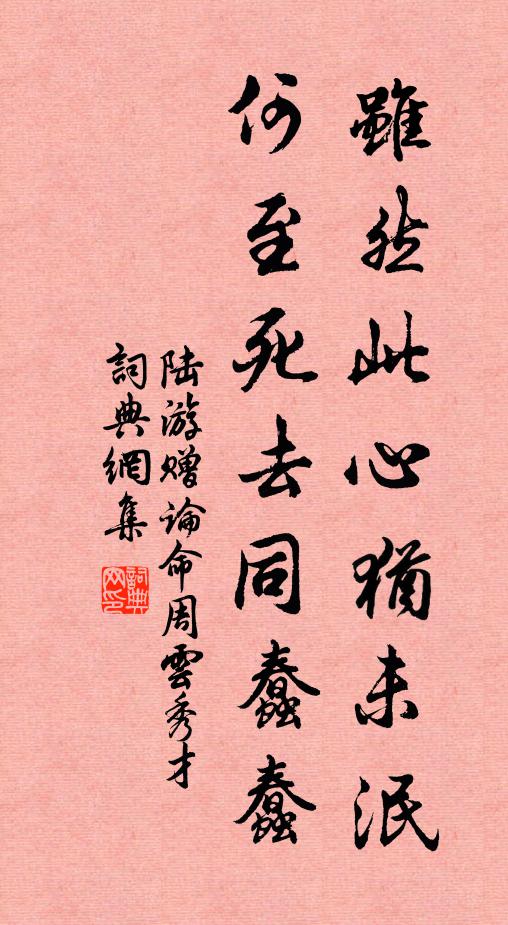 雖然此心猶未泯
何至死去同蠢蠢
陆游赠論命周雲秀才
詞典網集
詞典网印